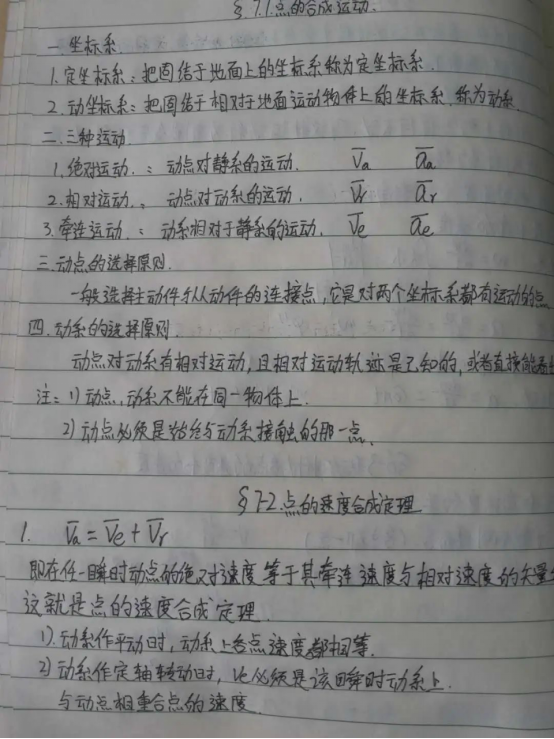 § 7.1 点的合成运动.
一. 坐标系
1. 定坐标系：把固结于地面上的坐标系称为定坐标系.
2. 动坐标系：把固结于相对于地面运动物体上的坐标系.称为动系
二. 三种运动
1. 绝对运动.：动点对静系的运动. V̅a a̅a
2. 相对运动.：动点对动系的运动. V̅r a̅r
3. 牵连运动.：动系相对于静系的运动. V̅e a̅e
三. 动点的选择原则.
一般选择主动件与从动件的连接点，它是对两个坐标系都有运动的点.
四. 动系的选择原则
动点对动系有相对运动，且相对运动轨迹是已知的，或者直接能看
注：1) 动点，动系不能在同一物体上.
2) 动点必须是始终与动系接触的那一点.
§ 7-2. 点的速度合成定理
1. V̅a = V̅e + V̅r
即在任一瞬时动点的绝对速度等于其牵连速度与相对速度的矢量
这就是点的速度合成定理.
1). 动系作平动时，动系上各点速度都相等.
2) 动系作定轴转动时，Ve必须是该瞬时动系上.
与动点相重合点的速度.